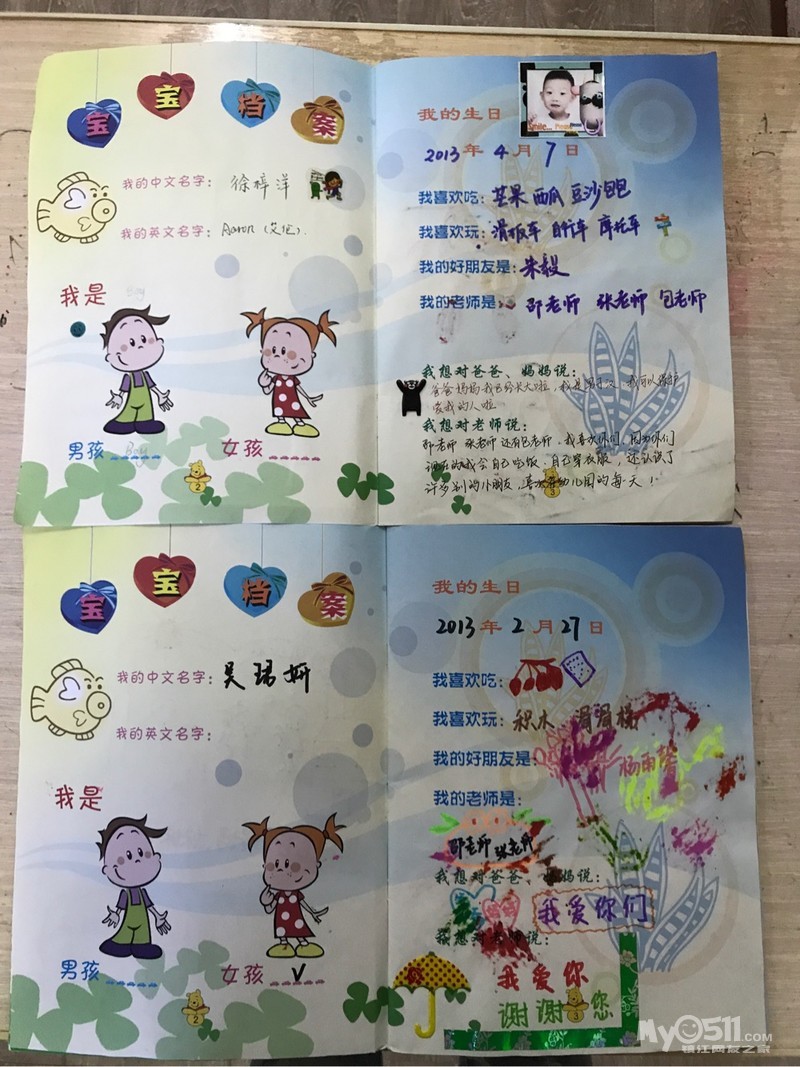 宝宝档案
我的中文名字：徐梓洋
我的英文名字：Aaron（艾伦）.
我是 Boy
男孩 Boy
女孩
2
我的生日
2013年4月7日
我喜欢吃：芒果 西瓜 豆沙包
我喜欢玩：滑板车 自行车 摩托车
我的好朋友是：朱毅
我的老师是：邵老师 张老师 包老师
我想对爸爸、妈妈说：
爸爸妈妈我已经长大啦，我是男子汉，我可以保护
爱我的人啦
我想对老师说：
邵老师 张老师 还有包老师，我喜欢你们，因为你们
现在的我会自己吃饭，自己穿衣服，还认识了
许多别的小朋友，喜欢在幼儿园的每一天！
3
宝宝档案
我的中文名字：吴珺妍
我的英文名字：
我是
男孩
女孩 √
2
我的生日
2013年2月27日
我喜欢吃：
我喜欢玩：积木 滑滑梯
我的好朋友是：杨雨馨
我的老师是：
邵老师 张老师
我想对爸爸、妈妈说：
我爱你们
我想对老师说：
我爱你
谢谢您
3
My0511.COM
镇江网友之家